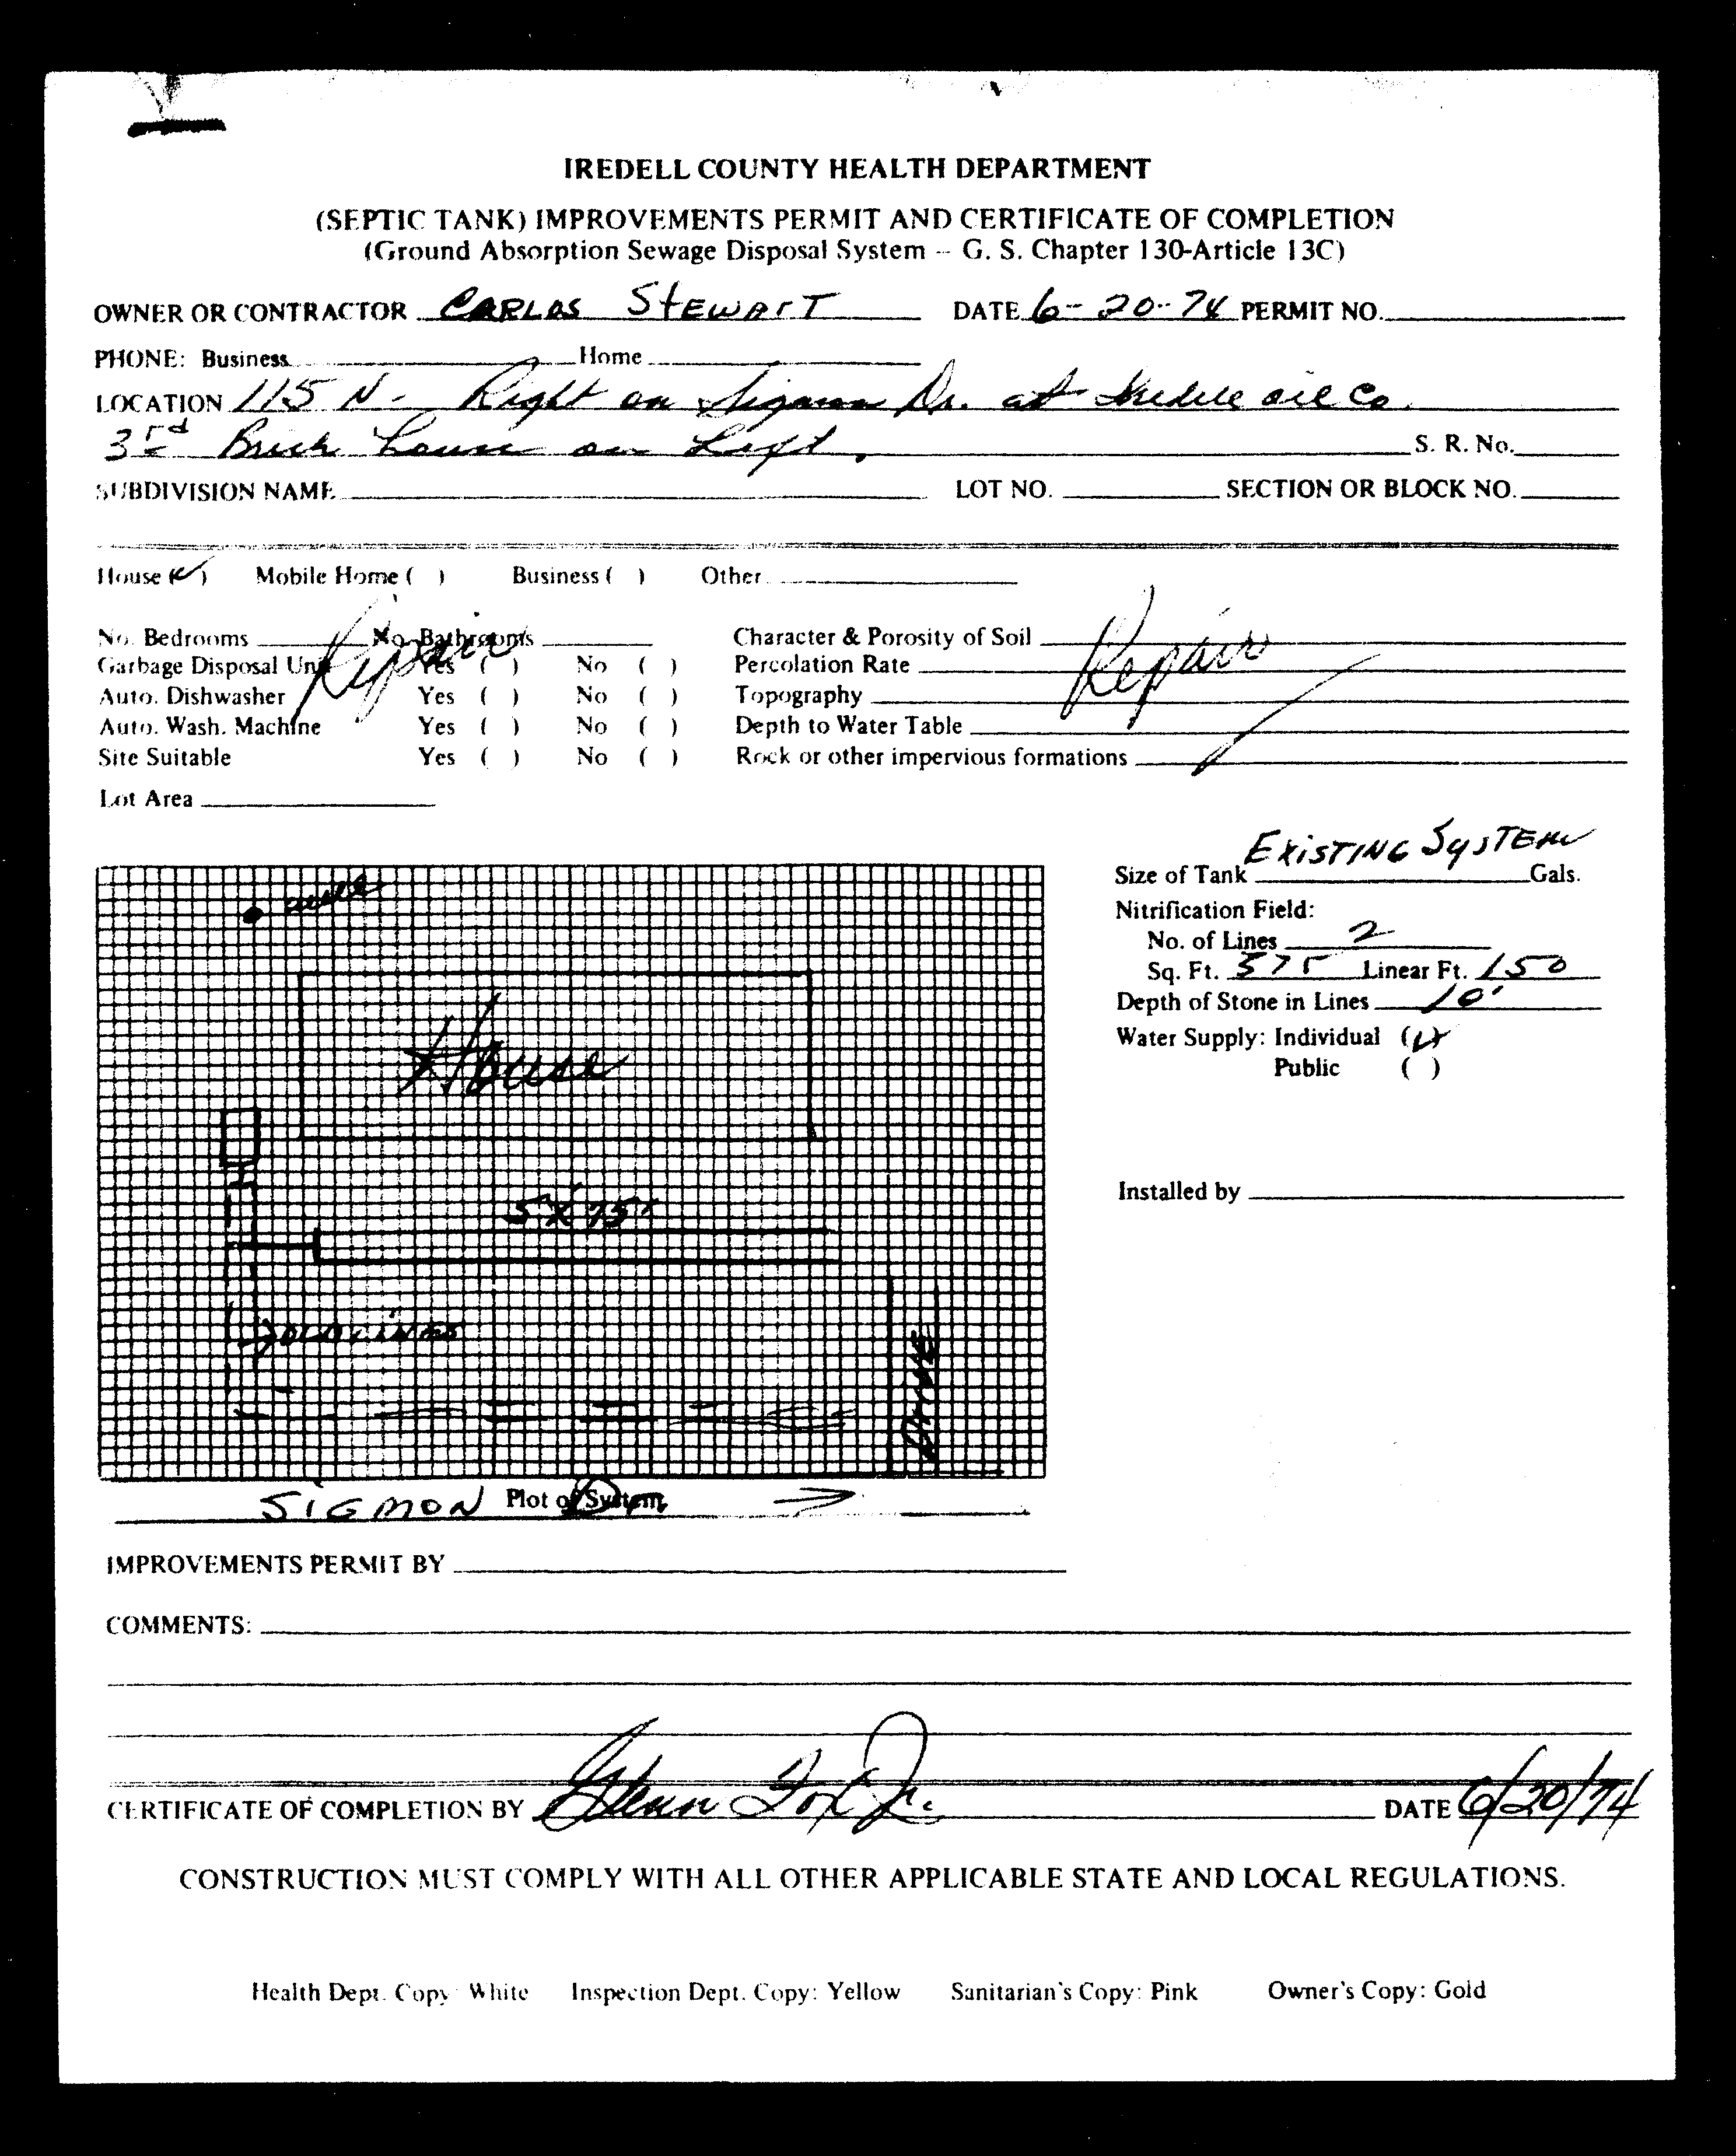 IREDELL COUNTY HEALTH DEPARTMENT
(SEPTIC TANK) IMPROVEMENTS PERMIT AND CERTIFICATE OF COMPLETION
(Ground Absorption Sewage Disposal System -- G. S. Chapter 130-Article 13C)
OWNER OR CONTRACTOR CARLOS STEWART DATE 6-20-74 PERMIT NO.
PHONE: Business Home
LOCATION 115 N - Right on Sigmon Dr. at Iredell oil Co.
3rd Brick house on Left. S. R. No.
SUBDIVISION NAME LOT NO. SECTION OR BLOCK NO.
House (✓) Mobile Home ( ) Business ( ) Other
Repair Repair
No. Bedrooms No. Bathrooms Character & Porosity of Soil
Garbage Disposal Unit Yes ( ) No ( ) Percolation Rate
Auto. Dishwasher Yes ( ) No ( ) Topography
Auto. Wash. Machine Yes ( ) No ( ) Depth to Water Table
Site Suitable Yes ( ) No ( ) Rock or other impervious formations
Lot Area
Size of Tank EXISTING SYSTEM Gals.
Nitrification Field:
No. of Lines 2
Sq. Ft. 575 Linear Ft. 150
Depth of Stone in Lines 10"
Water Supply: Individual (✓)
Public ( )
Installed by
well
House
5 X 75'
OLD LINES
DRIVE
SIGMON Dr. →
Plot of System
IMPROVEMENTS PERMIT BY
COMMENTS:
CERTIFICATE OF COMPLETION BY Glenn Fox Jr. DATE 6/20/74
CONSTRUCTION MUST COMPLY WITH ALL OTHER APPLICABLE STATE AND LOCAL REGULATIONS.
Health Dept. Copy: White Inspection Dept. Copy: Yellow Sanitarian's Copy: Pink Owner's Copy: Gold